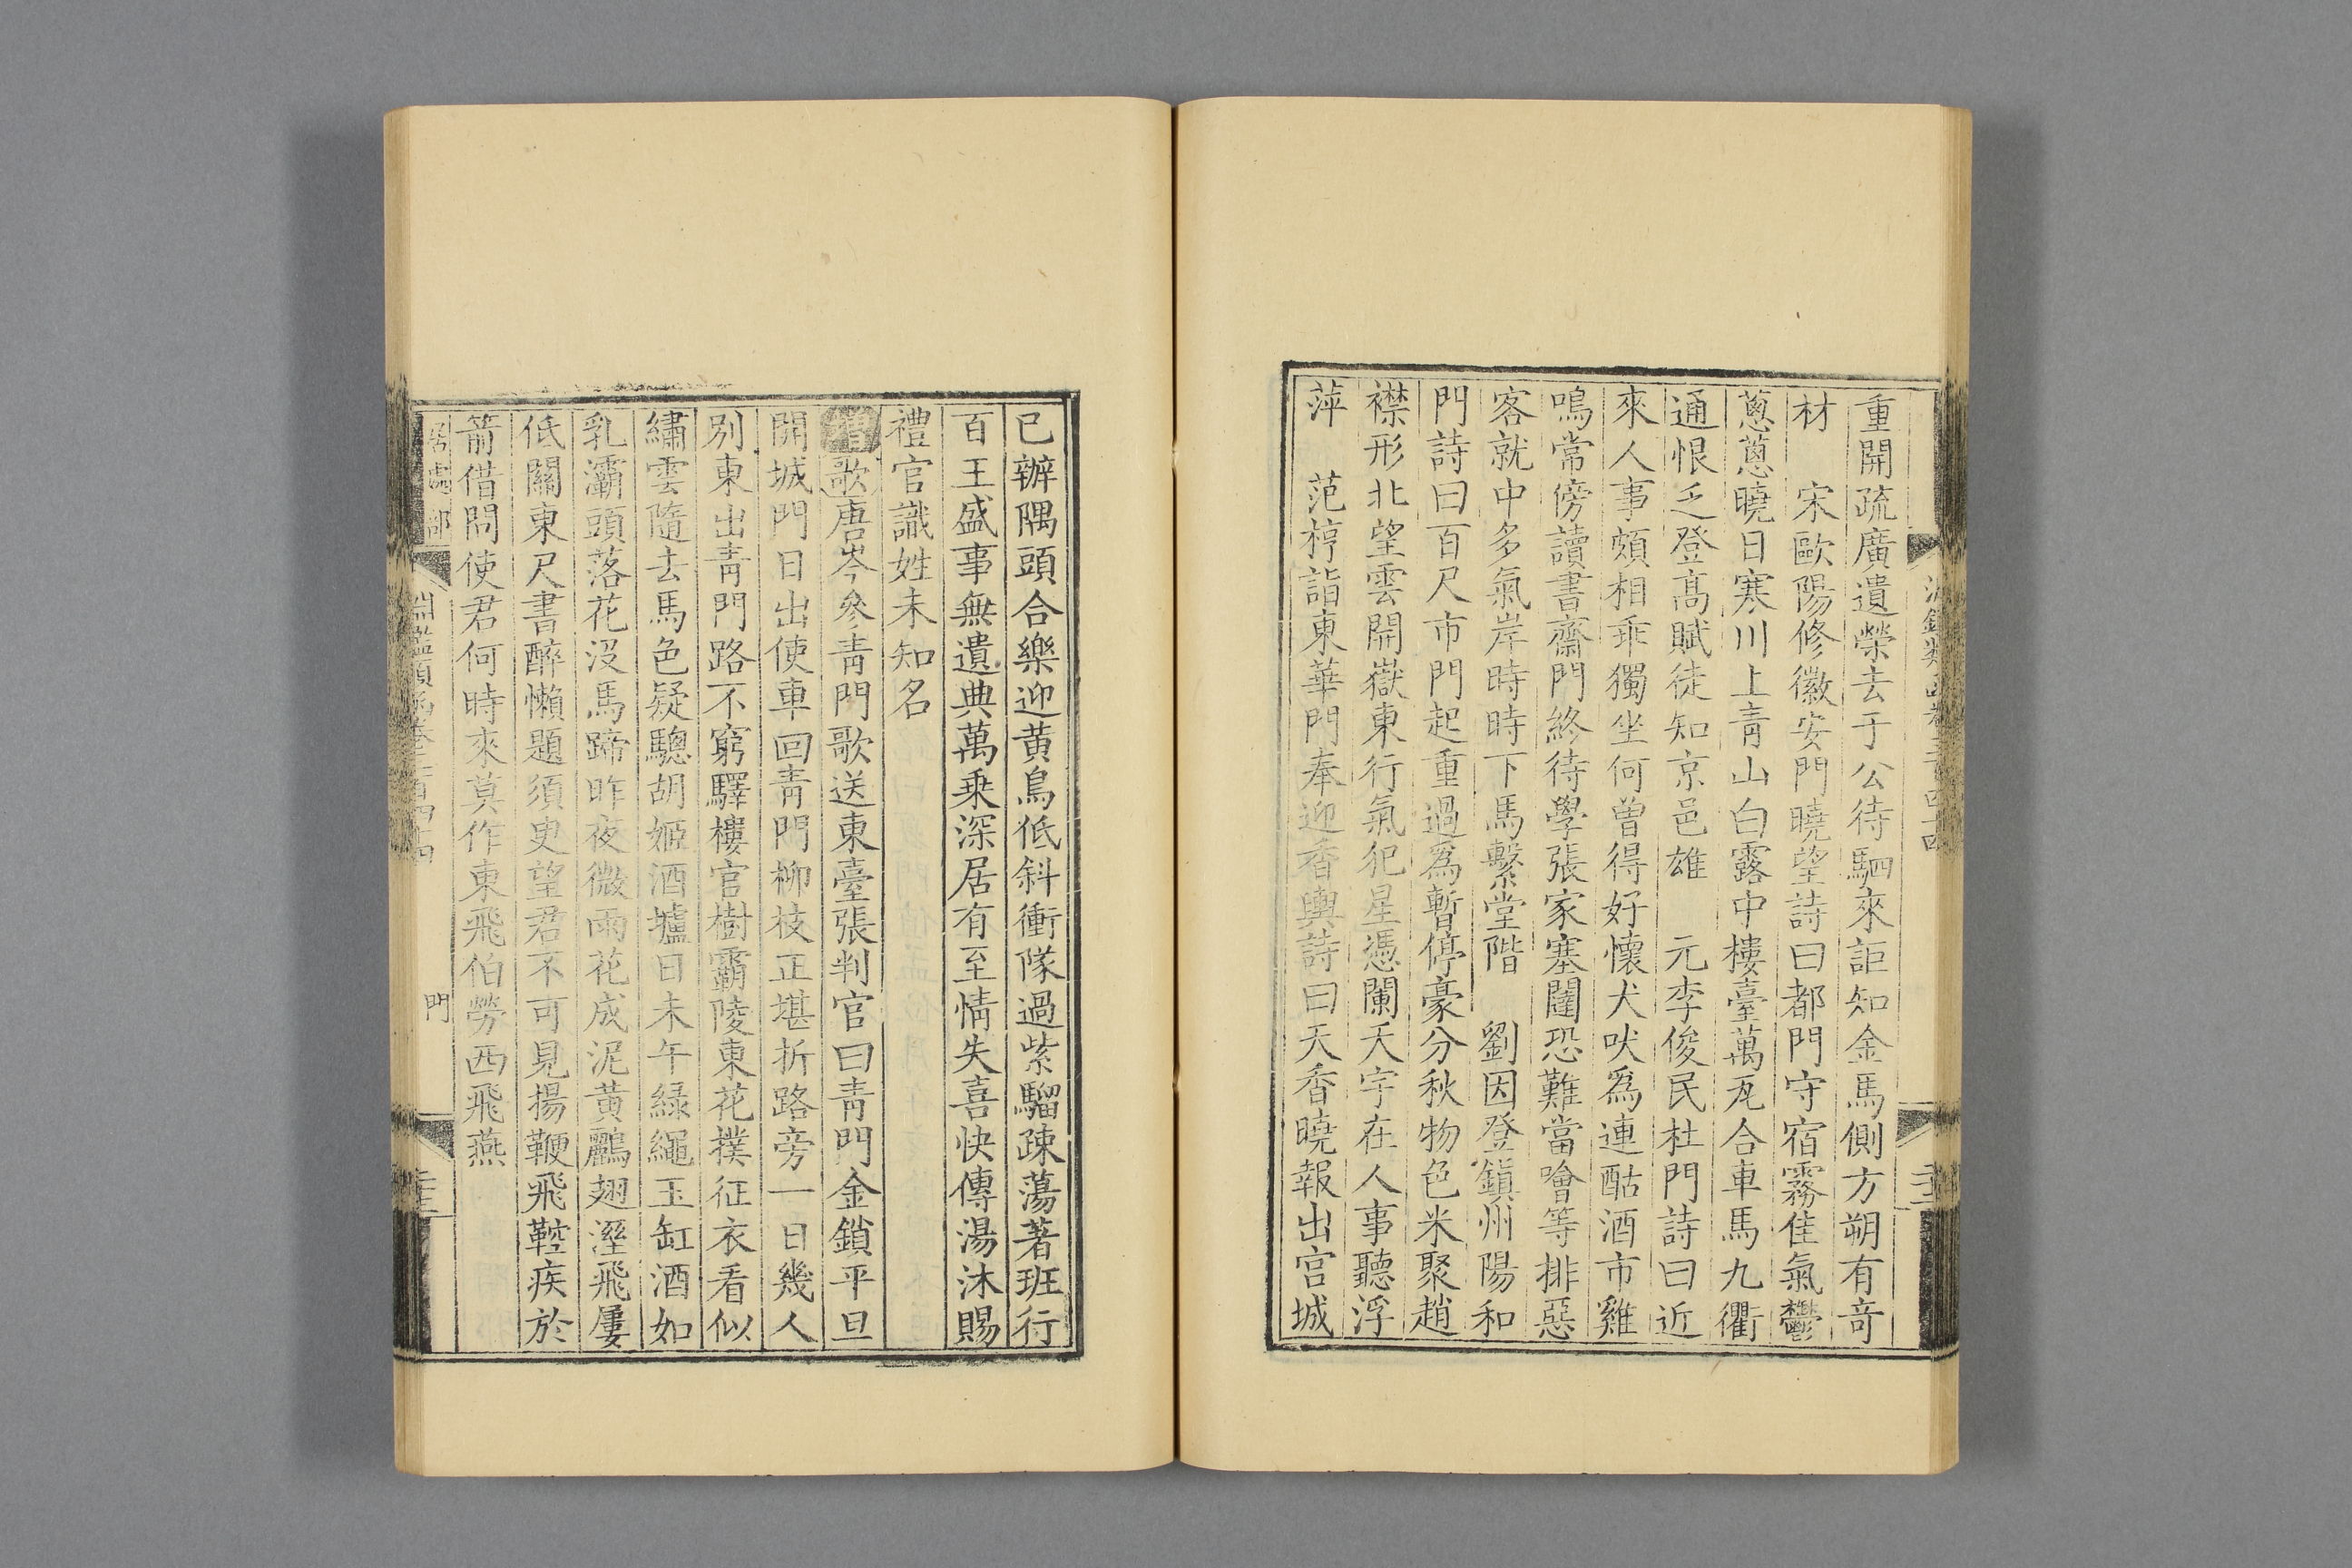 重開疏廣遺榮去于公待駟來詎知金馬側方朔有竒
材　宋歐陽修徽安門曉望詩曰都門守宿霧佳氣鬱
蔥蔥曉日寒川上青山白露中樓臺萬瓦合車馬九衢
通恨乏登髙賦徒知京邑雄　元李俊民杜門詩曰近
來人事頗相乖獨坐何曾得好懷犬吠爲連酤酒市雞
鳴常傍讀書齋門終待學張家塞闥恐難當噲等排惡
客就中多氣岸時時下馬繫堂階　劉因登鎮州陽和
門詩曰百尺市門起重過爲暫停豪分秋物色米聚趙
襟形北望雲開嶽東行氣犯星憑闌天宇在人事聽浮
萍　范梈詣東華門奉迎香輿詩曰天香曉報出宫城
已辦隅頭合樂迎黄鳥低斜衝隊過紫騮疎蕩著班行
百王盛事無遺典萬乗深居有至情失喜快傳湯沐賜
禮官識姓未知名
增歌唐岑參青門歌送東臺張判官曰青門金鎖平旦
開城門日出使車回青門柳枝正堪折路旁一日幾人
別東出青門路不窮驛樓官樹霸陵東花撲征衣看似
繡雲隨去馬色疑驄胡姬酒壚日未午緑繩玉缸酒如
乳灞頭落花没馬蹄昨夜微雨花成泥黄鸝翅溼飛屢
低關東尺書醉懶題須臾望君不可見揚鞭飛鞚疾於
箭借問使君何時來莫作東飛伯勞西飛燕
居處部
淵鑑類函卷三百四十四
門